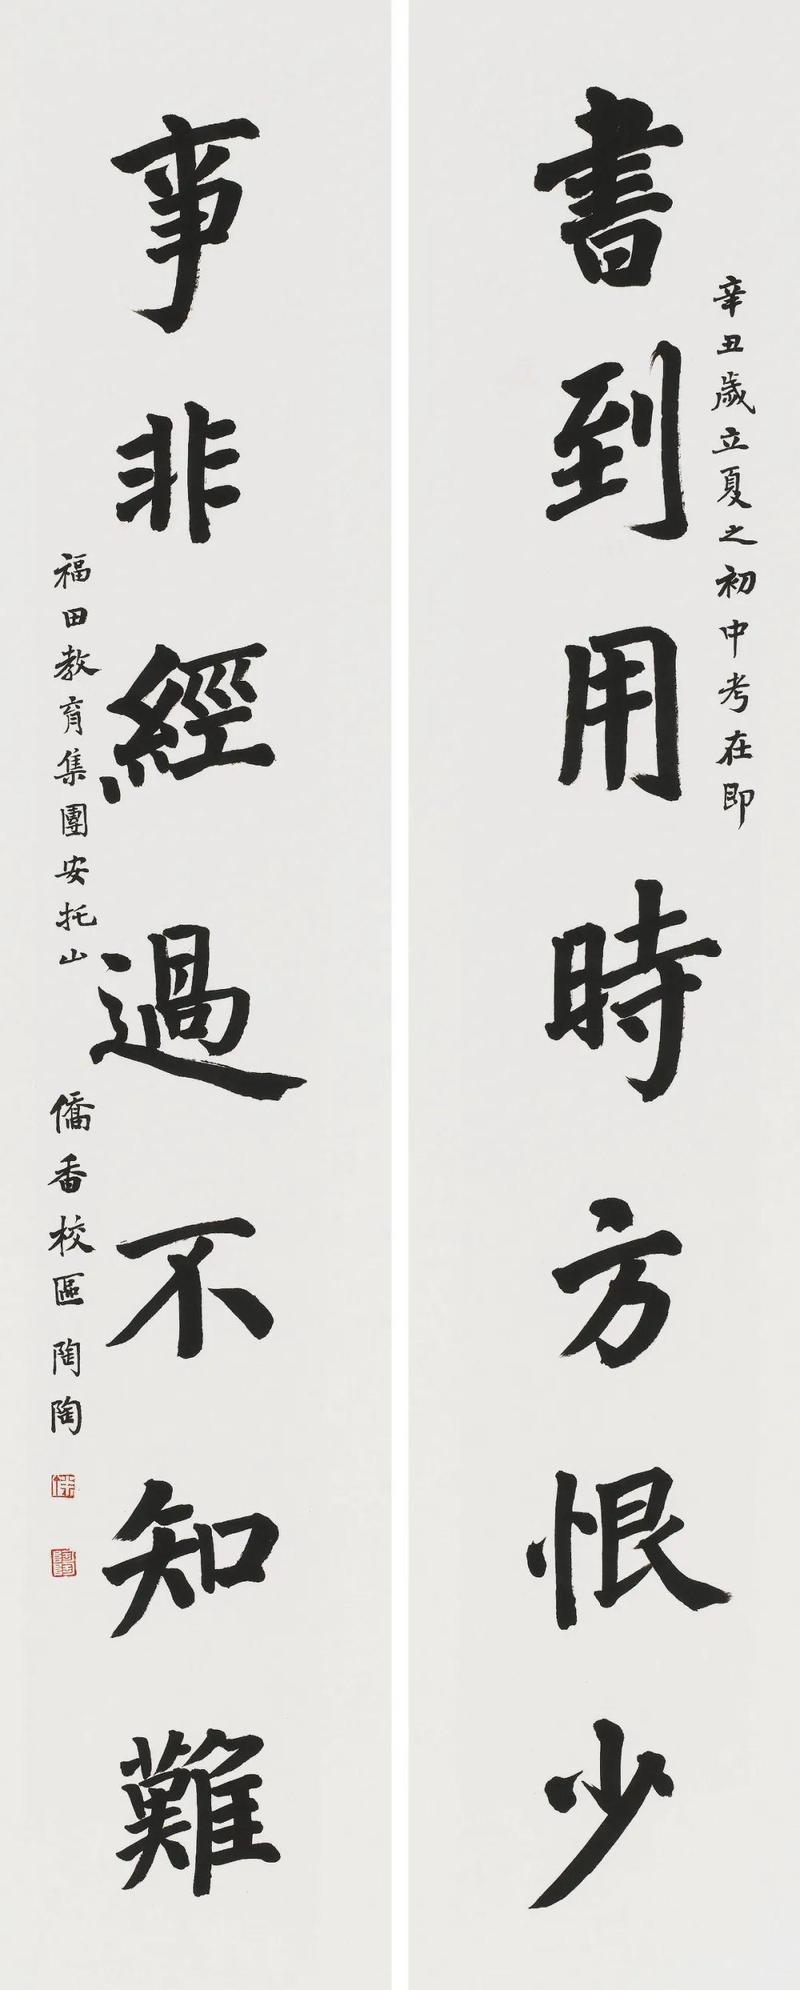 辛丑歲立夏之初中考在即
書到用時方恨少
事非經過不知難
福田教育集團安托山
僑香校區陶陶